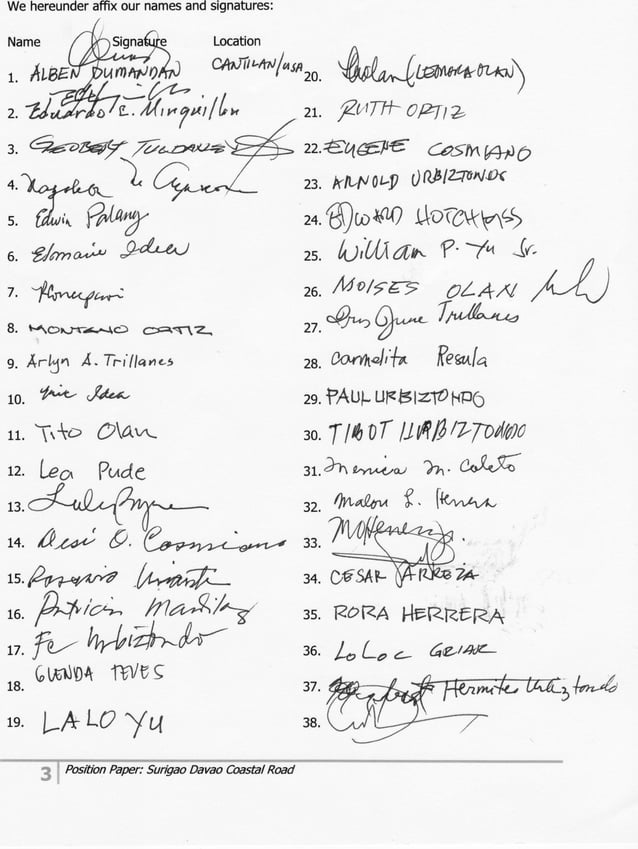 We hereunder affix our names and signatures:
Name Signature Location
1. ALBEN DUMANDAN CANTILAN/USA
2. Eduardo E. Minquillon
3.
4.
5. Edwin Palang
6. Elomarie Idea
7.
8. MONTANO ORTIZ
9. Arlyn A. Trillanes
10. Idea
11. Tito Olan
12. Lea Pude
13.
14. Desi O. Cosmiano
15. Rosario Uriarte
16. Patricia
17. Fe Urbiztondo
18. GLENDA TEVES
19. LALO YU
20. (LEONORA OLAN)
21. RUTH ORTIZ
22. EUGENE COSMIANO
23. ARNOLD URBIZTONDO
24. EDWARD HOTCHKISS
25. William P. Yu Jr.
26. MOISES OLAN
27. June Trillanes
28. Carmelita Resula
29. PAUL URBIZTONDO
30. TIBOT URBIZTONDO
31. M. Coleto
32. Malou L. Herrera
33.
34. CESAR ARREZA
35. RORA HERRERA
36. LOLOC GRIAR
37. Hermites Urbiztondo
38.
3 Position Paper: Surigao Davao Coastal Road